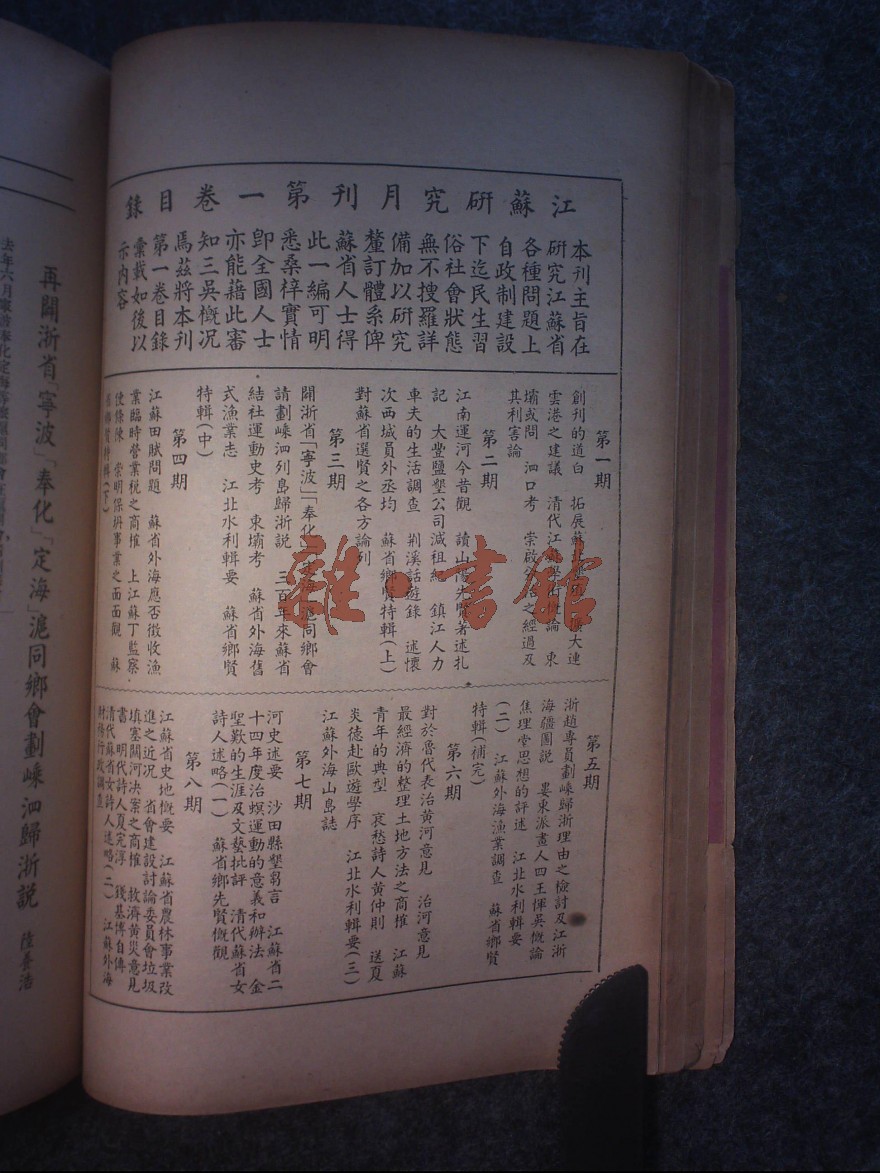 江蘇研究月刊第一卷目錄
本刊主旨在
研究江蘇省
各種問題上
自政制建設
下迄民生習
俗社會狀態
無不搜羅詳
備加以研究
釐訂體系俾
蘇省人士得
此一編可明
悉桑梓實情
卽全國人士
亦能藉此審
知三吳概况
焉茲將本刊
第一卷目錄
彙載如後以
示內容
第一期
創刊的道白　拓展蘇　擴大連
雲港之建議　清代江蘇學術概論　東
壩或問　泗口考　崇啟　之經過及
其利害論
第二期
江南運河今昔觀　讀山陽先賢著述扎
記　大豐鹽墾公司減租　鎮江人力
車夫的生活調查　荆溪話遊錄　述懷
次西城員外丞均　蘇省鄉賢特輯（上）
對蘇省選賢之各方論列
第三期
闢浙省「寧波」「奉化」「定海」滬同鄉會
請劃嵊泗列島歸浙說　三百年來蘇省
結社運動史考　東壩考　蘇省外海舊
式漁業志　江北水利輯要　蘇省鄉賢
特輯（中）
第四期
江蘇田賦問題　蘇省外海應否徵收漁
業臨時營業税之商榷　上江蘇丁監察
使條陳　崇明保坍事業之面面觀　蘇
省鄉賢特輯（下）
第五期
浙趙專員劃嵊歸浙理由之檢討及江浙
海疆圖說　婁東派畫人四王惲吳概論
焦理堂思想的評述　江北水利輯要
（二）　江蘇外海漁業調查　蘇省鄉賢
特輯（補完）
第六期
對於魯代表治黃河意見　治河意見
最經濟的整理土地方法之商榷　江蘇
青年的典型　哀愁詩人黃仲則　送夏
炎德赴歐遊學序　江北水利輯要（三）
江蘇外海山島誌
第七期
河史述要　沙田縣墾芻言　江蘇省二
十四年度治螟運動的意義和辦法　金
聖歎的生涯及文藝批評　清代蘇省女
詩人述略（一）　蘇省鄉先賢概觀
第八期
江蘇省史地概要　江蘇省農林事業改
進之近况　省會建設討論委員會垃圾
填塞關河決案之商榷　救濟黃災意見
書　明代詩人夏完淳　錢基博自傳
清代蘇省女詩人述略（二）　江蘇外海
財務行政調查
再闢浙省「寧波」「奉化」「定海」滬同鄉會劃嵊泗歸浙説　陸養浩
雜·書館